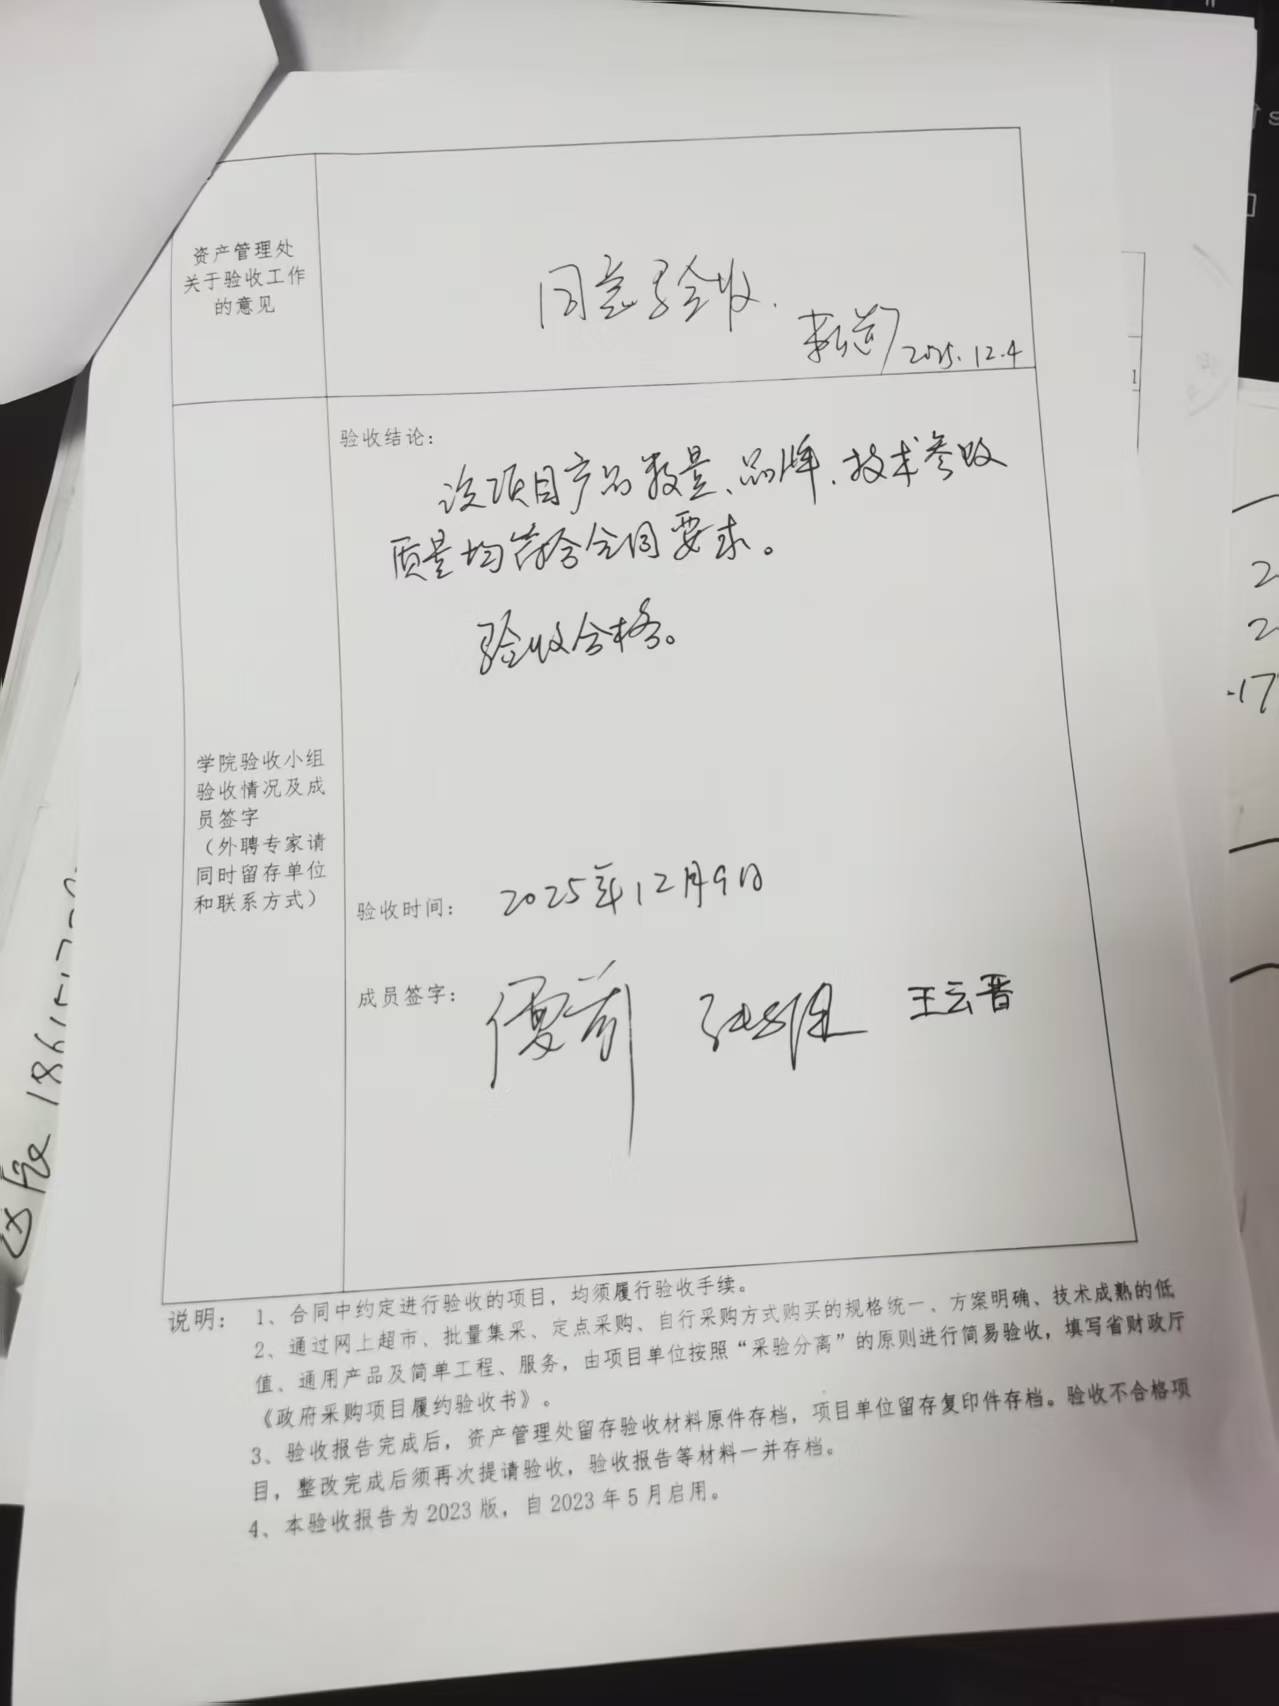 资产管理处
关于验收工作
的意见
同意验收.
2025.12.4
验收结论：
该项目产品数量、品牌、技术参数
质量均符合合同要求。
验收合格。
学院验收小组
验收情况及成
员签字
（外聘专家请
同时留存单位
和联系方式）
验收时间： 2025年12月9日
成员签字： 王云晋
说明： 1、合同中约定进行验收的项目，均须履行验收手续。
2、通过网上超市、批量集采、定点采购、自行采购方式购买的规格统一、方案明确、技术成熟的低
值、通用产品及简单工程、服务，由项目单位按照“采验分离”的原则进行简易验收，填写省财政厅
《政府采购项目履约验收书》。
3、验收报告完成后，资产管理处留存验收材料原件存档，项目单位留存复印件存档。验收不合格项
目，整改完成后须再次提请验收，验收报告等材料一并存档。
4、本验收报告为2023版，自2023年5月启用。